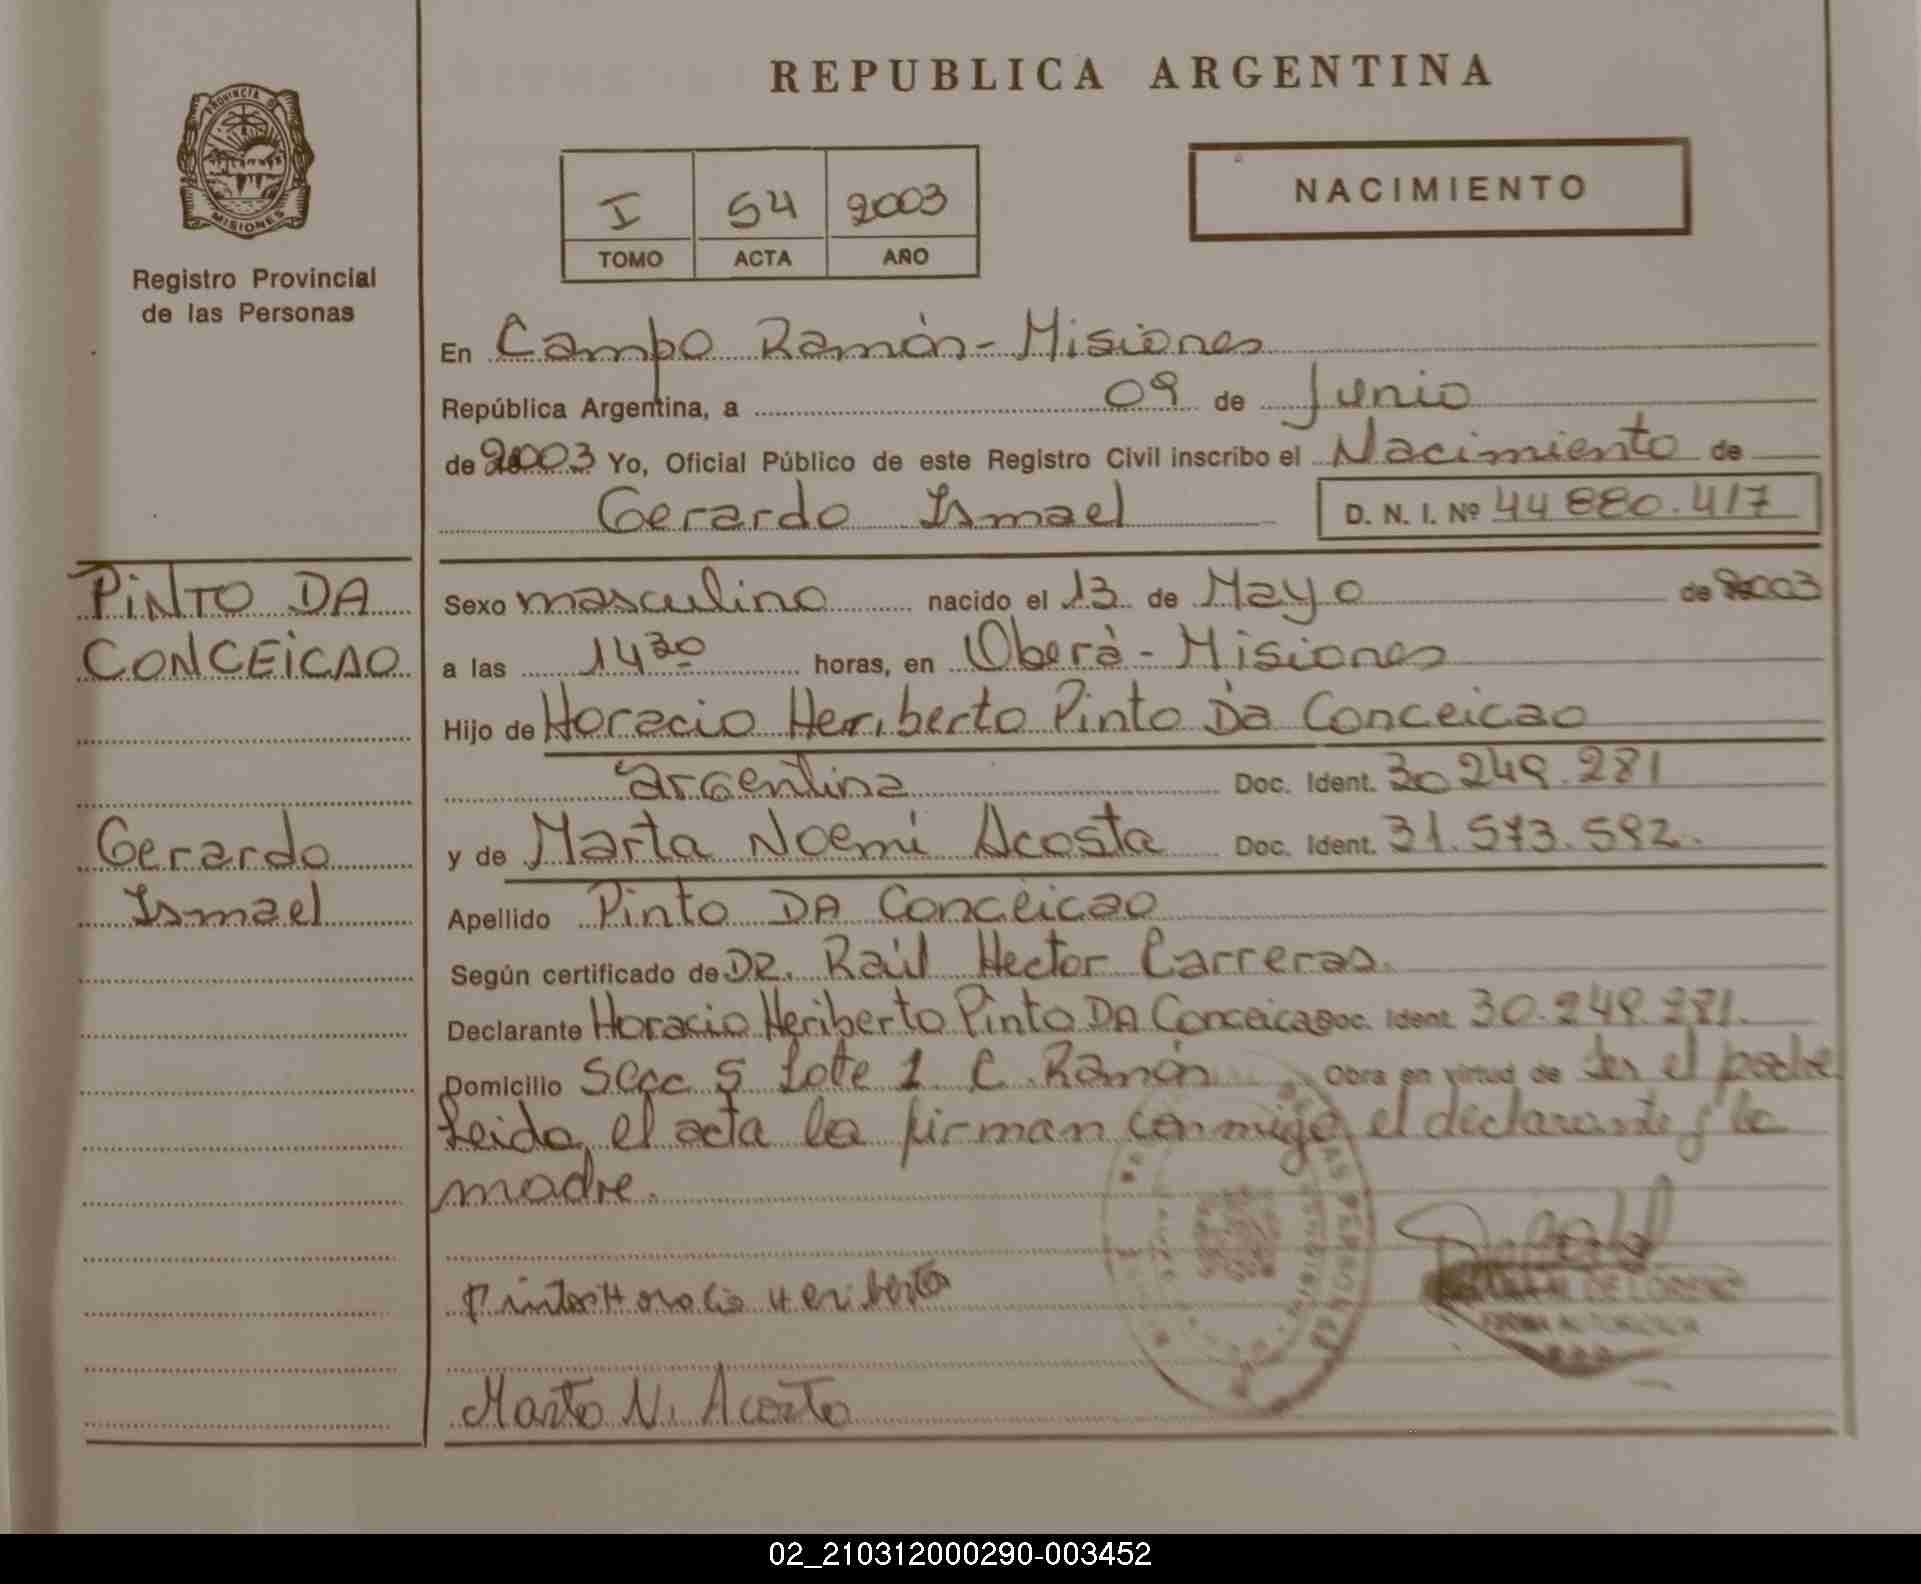 REPUBLICA ARGENTINA
PROVINCIA D
MISIONES
Registro Provincial
de las Personas
I 54 2003
TOMO ACTA AÑO
NACIMIENTO
En Campo Ramón - Misiones
República Argentina, a 09 de Junio
de 2003 Yo, Oficial Público de este Registro Civil inscribo el Nacimiento de
Gerardo Ismael D. N. I. Nº 44 880.417
PINTO DA
CONCEICAO
Gerardo
Ismael
Sexo masculino nacido el 13 de Mayo de 2003
a las 14 30 horas, en Oberá - Misiones
Hijo de Horacio Heriberto Pinto Da Conceicao
argentina Doc. Ident. 30 249.281
y de Marta Noemí Acosta Doc. Ident. 31.573.592.
Apellido Pinto DA Conceicao
Según certificado de DR. Raúl Hector Carreras.
Declarante Horacio Heriberto Pinto DA Conceicao Doc. Ident. 30.249.281.
Domicilio Secc 5 Lote 1 C. Ramón Obra en virtud de ser el padre
Leida el acta la firman conmigo el declarante y la
madre.
Pinto Horacio Heriberto
Marta N. Acosta
DE LAS PERSONAS
FIRMA AUTORIZADA
02_210312000290-003452